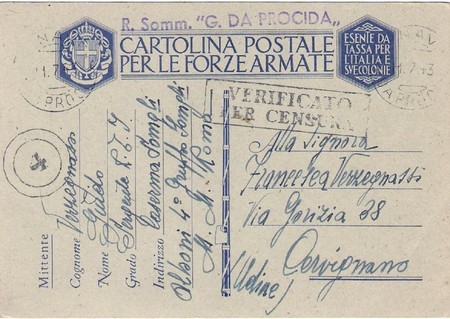 R. Somm. "G. DA PROCIDA"
CARTOLINA POSTALE
PER LE FORZE ARMATE
ESENTE DA
TASSA PER
L'ITALIA E
SVE COLONIE
1.7
1.7.43
VERIFICATO
PER CENSURA
4
Mittente
Cognome Verzegnassi
Nome Guido
Grado Sergente
Indirizzo Caserma
4° Gruppo
Roma
Alla Signora
Francesca Verzegnassi
Via Gorizia 38
Cervignano
(Udine)